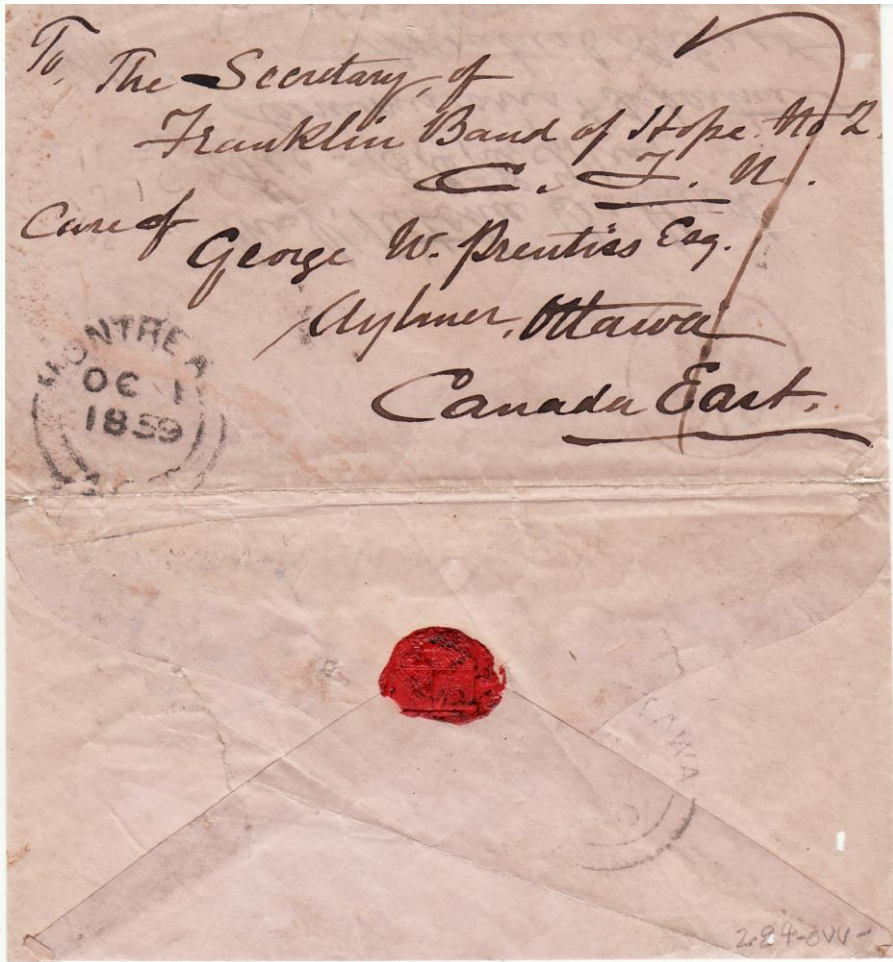 To,
The Secretary, of
Franklin Band of Hope. No 2.
C. T. N.
Care of
George W. Prentiss Esq.
Aylmer, Ottawa
Canada East.
7
MONTREA
OC 1
1859
AWA